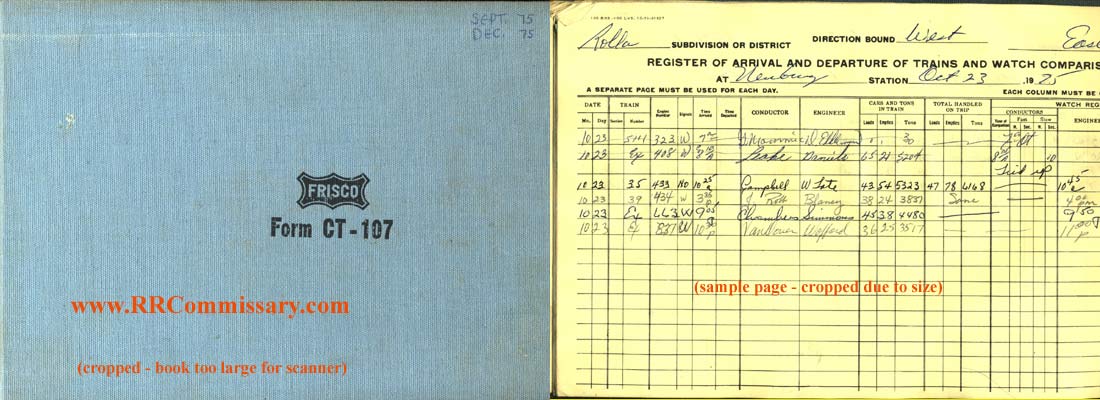 SEPT. 75
DEC. 75
FRISCO
Form CT-107
www.RRCommissary.com
(cropped - book too large for scanner)
Rolla SUBDIVISION OR DISTRICT DIRECTION BOUND West
REGISTER OF ARRIVAL AND DEPARTURE OF TRAINS AND WATCH COMPARIS
AT Newburg STATION Oct 23 1975
A SEPARATE PAGE MUST BE USED FOR EACH DAY. EACH COLUMN MUST BE
DATE TRAIN Engine Number Signals Time Arrived Time Departed CONDUCTOR ENGINEER CARS AND TONS IN TRAIN TOTAL HANDLED ON TRIP WATCH REG
CONDUCTORS ENGINE
Mo. Day Section Number Loads Empties Tons Loads Empties Tons Time of Comparison Fast Slow
M. Sec. M. Sec.
10 23 514 323 W
10 23 Ex 408 W Daniels 65 21 5204
Tied up
10 23 35 433 NO 10 25 Campbell W Tate 43 54 5323 47 78 6168 10 45
10 23 39 434 W 3 35 J. Rott Blaney 38 24 3837 Same
10 23 Ex 663 W 9 05 Chambers Simmons 45 38 4480 9 50
10 23 Ex 837 W 10 VanHover Wofford 36 25 3517 11
(sample page - cropped due to size)